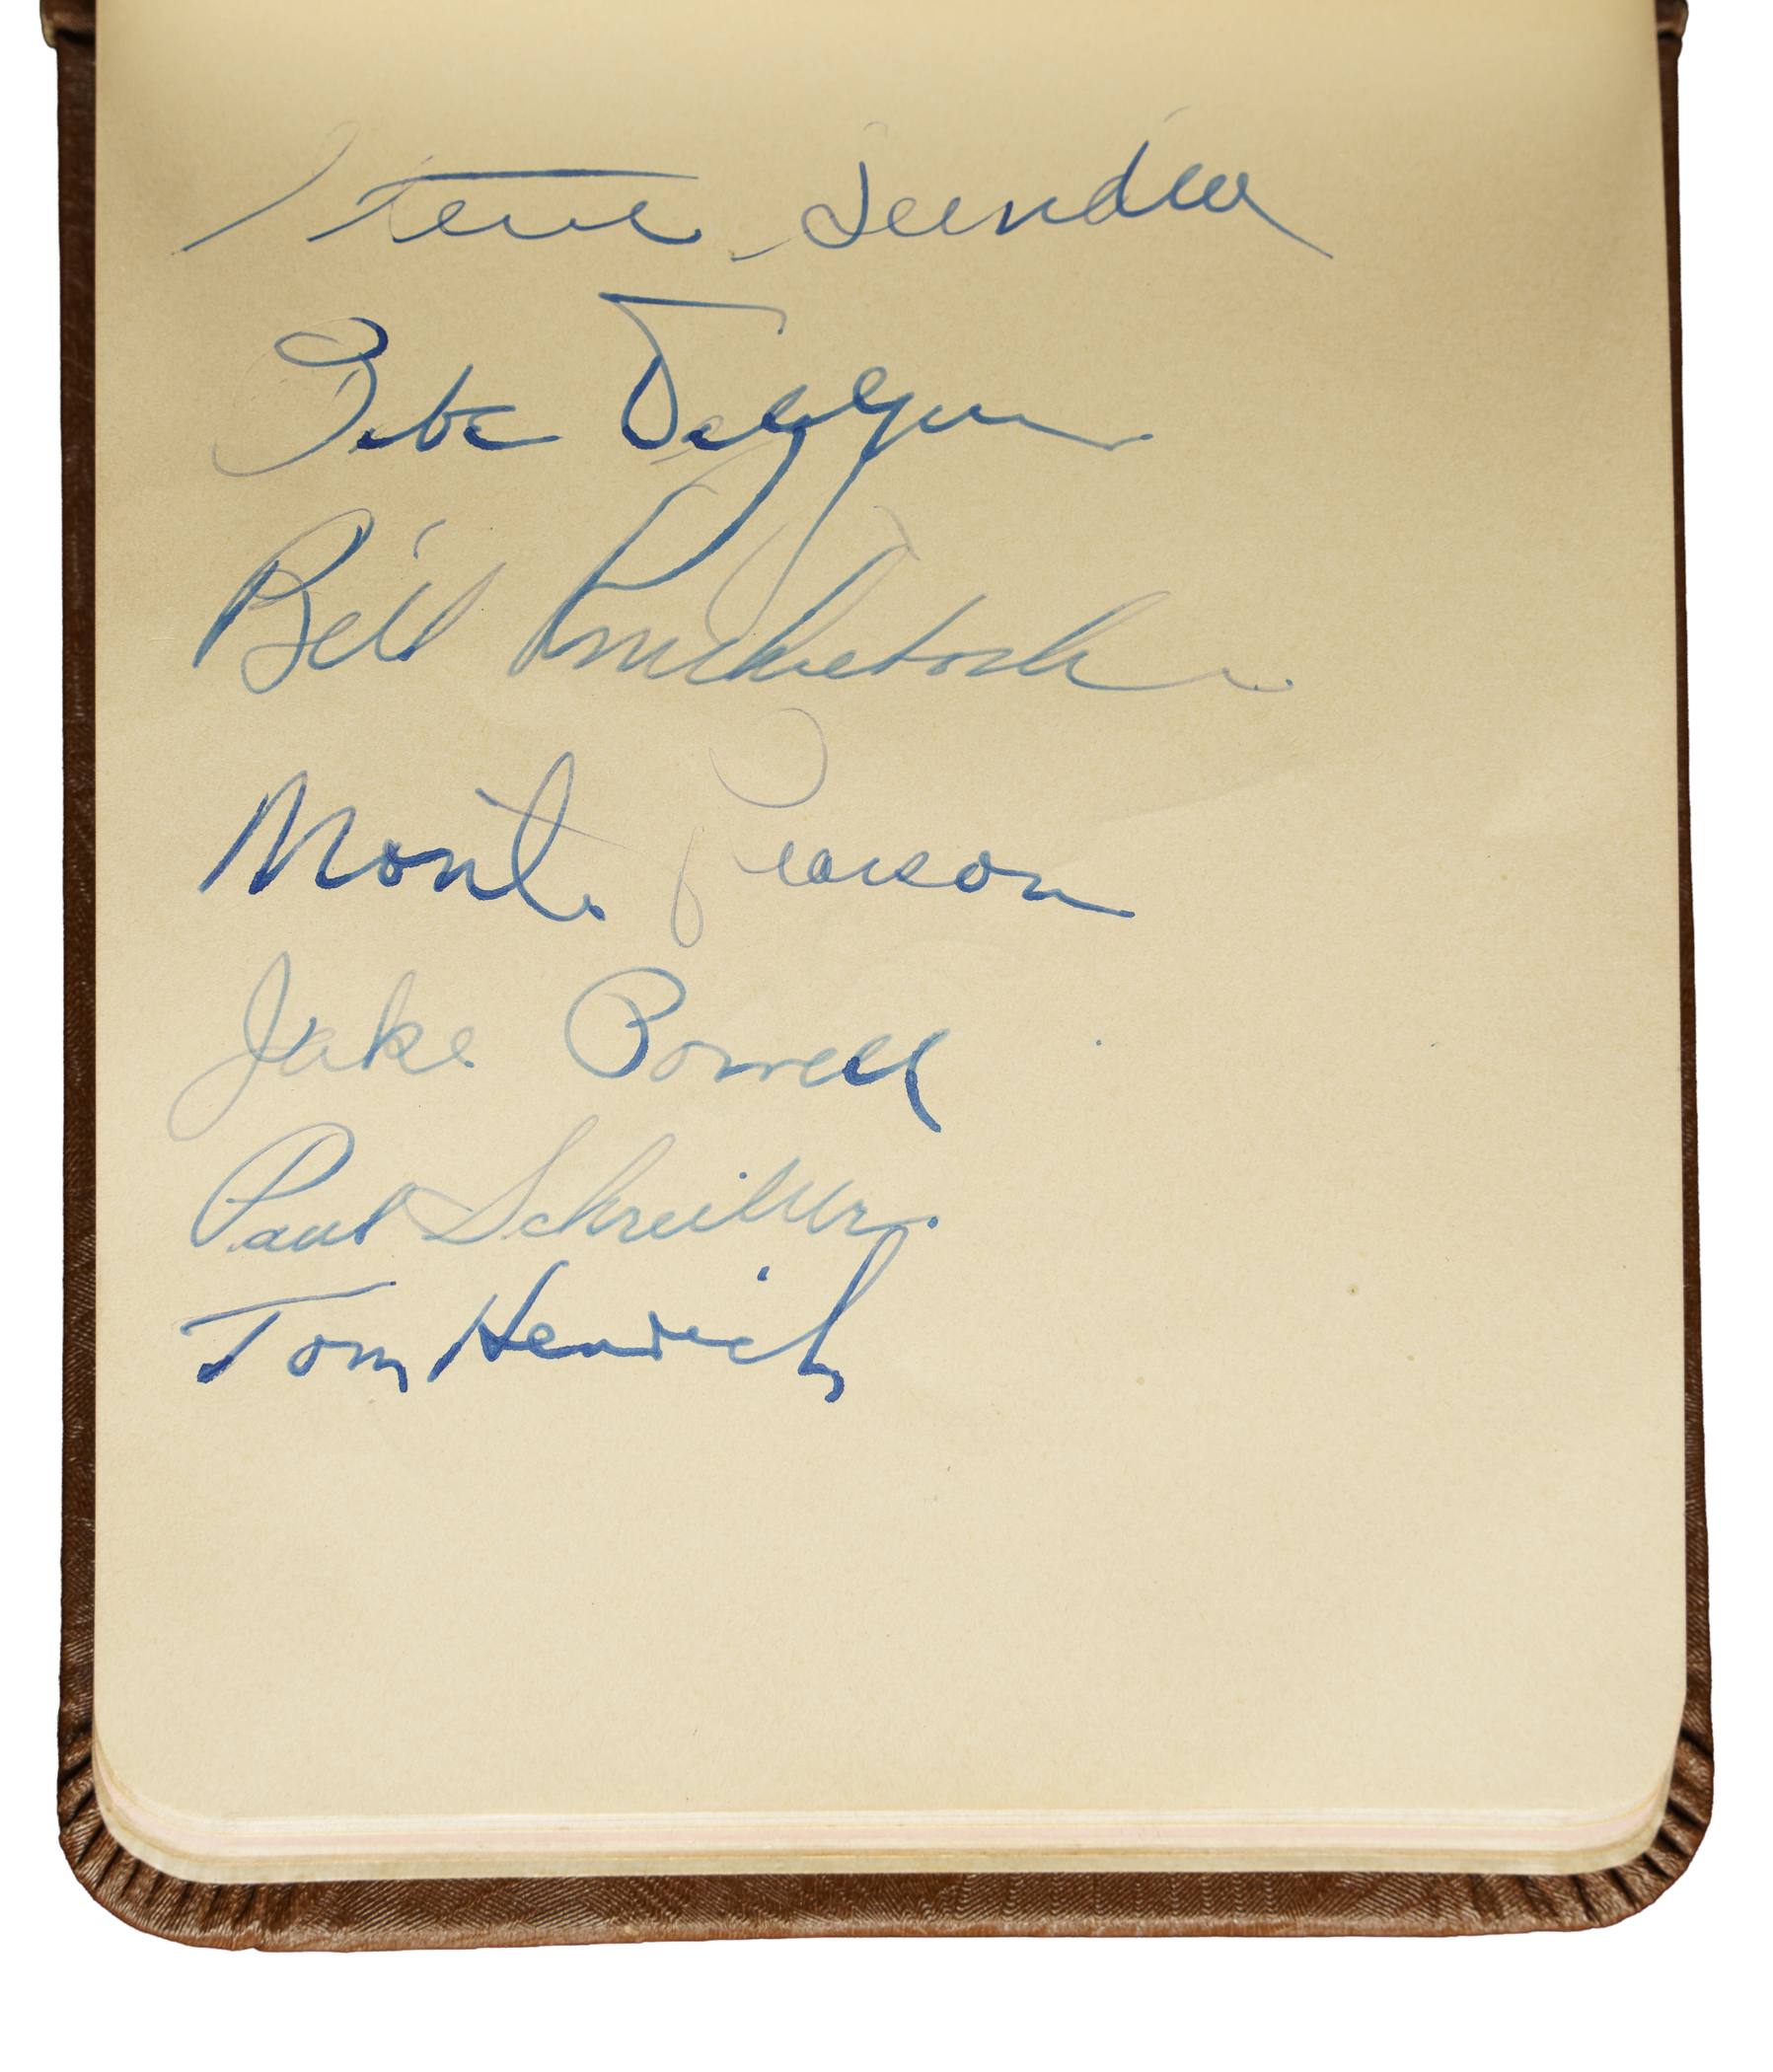 Steve Sundra
Babe Dahlgren
Bill Knickerbocker
Monte Pearson
Jake Powell
Paul Schreiber
Tom Henrich